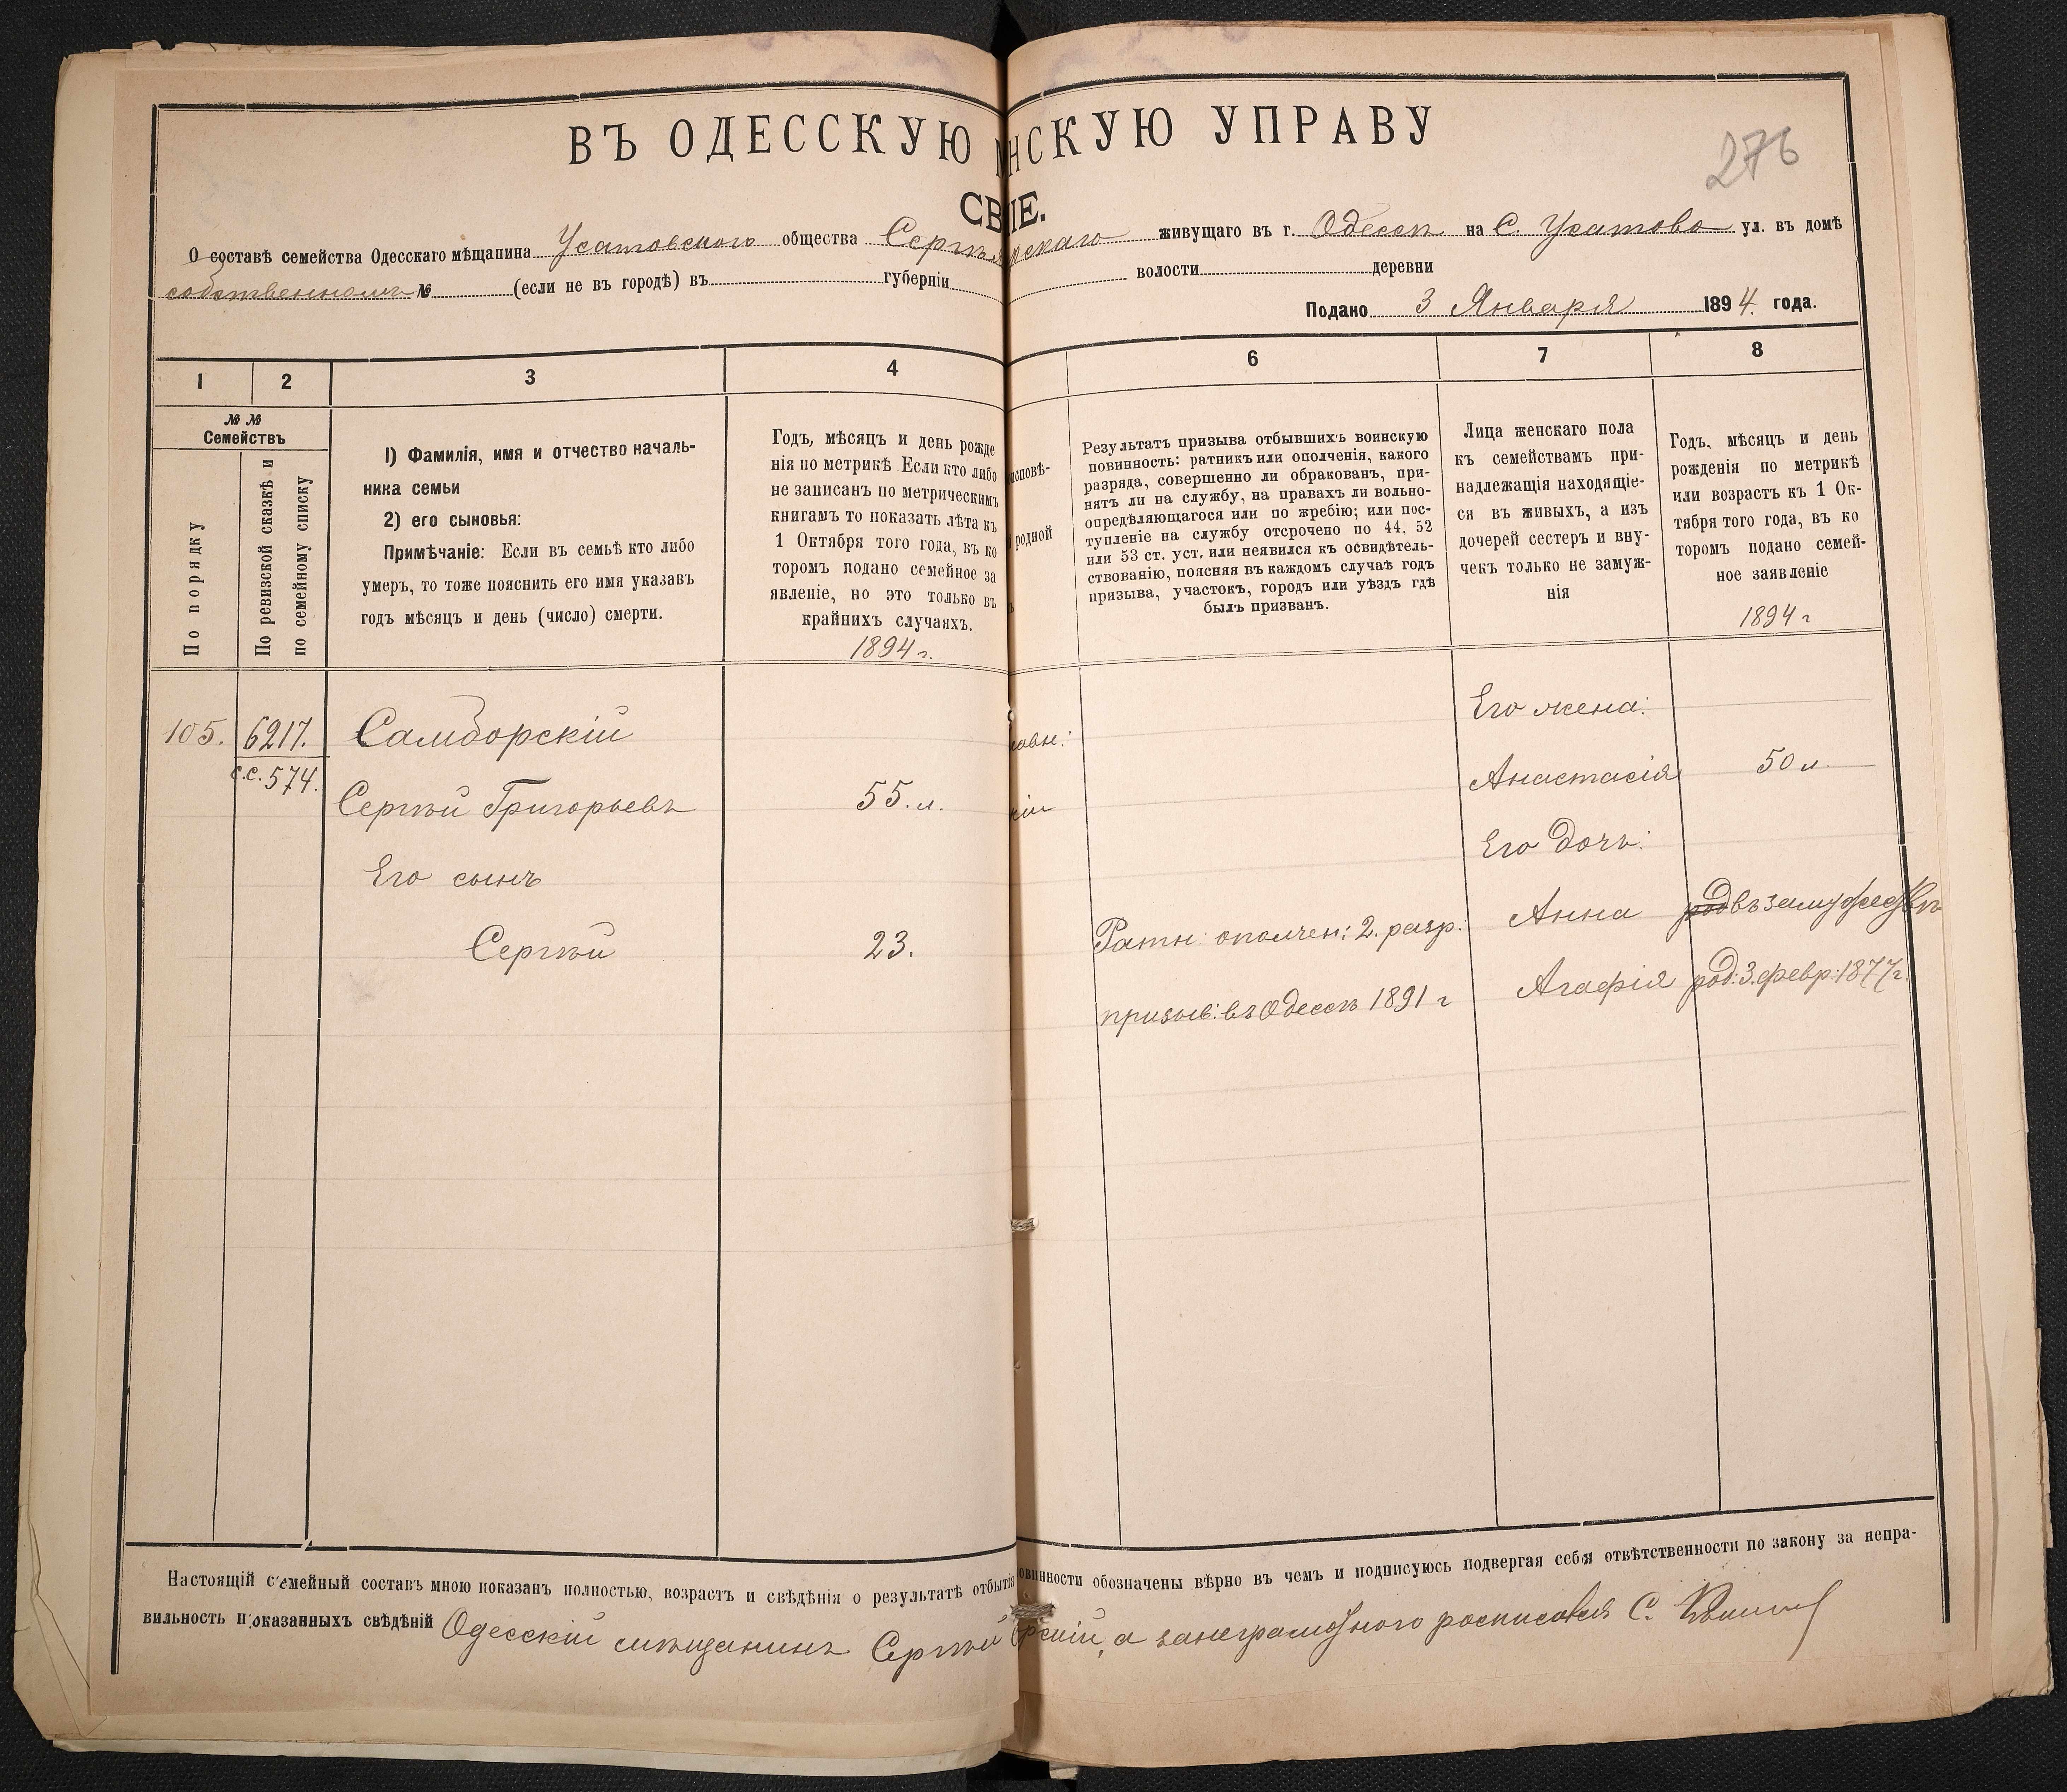 ВЪ ОДЕССКУЮ НСКУЮ УПРАВУ
276
СВ IE.
О составѣ семейства Одесскаго мѣщанина Усатовскаго общества Сергѣя рскаго живущаго въ г. Одессѣ на С. Усатово ул. въ домѣ
собственномъ № (если не въ городѣ) въ губерніи волости деревни
Подано 3 Января 1894. года.
1 2 3 4 6 7 8
№ № Семействъ
По порядку
По ревизской сказкѣ и по семейному списку
1) Фамилія, имя и отчество началь-
ника семьи
2) его сыновья:
Примѣчаніе: Если въ семьѣ кто либо
умеръ, то тоже пояснить его имя указавъ
годъ мѣсяцъ и день (число) смерти.
Годъ, мѣсяцъ и день рожде
нія по метрикѣ. Если кто либо
не записанъ по метрическимъ
книгамъ то показать лѣта къ
1 Октября того года, въ ко
торомъ подано семейное за
явленіе, но это только въ
крайнихъ случаяхъ.
1894 г.
исповѣ-
родной
Результатъ призыва отбывшихъ воинскую
повинность: ратникъ или ополченія, какого
разряда, совершенно ли обракованъ, при-
нятъ ли на службу, на правахъ ли вольно-
опредѣляющагося или по жребію; или пос-
тупленіе на службу отсрочено по 44, 52
или 53 ст. уст, или неявился къ освидѣтель-
ствованію, поясняя въ каждомъ случаѣ годъ
призыва, участокъ, городъ или уѣздъ гдѣ
былъ призванъ.
Лица женскаго пола
къ семействамъ при-
надлежащія находящіе-
ся въ живыхъ, а изъ
дочерей сестеръ и вну-
чекъ только не замуж-
нія
Годъ, мѣсяцъ и день
рожденія по метрикѣ
или возрастъ къ 1 Ок-
тября того года, въ ко
торомъ подано семей-
ное заявленіе
1894 г
105. 6217. Самборскій
с.с. 574.
Сергѣй Григорьевъ 55. л.
Его сынъ
Сергѣй 23.
авн:
кій
Ратн: ополчен: 2. разр.
призыв: въ Одессѣ 1891 г
Его жена:
Анастасія 50 л.
Его дочь:
Анна род въ замужествѣ
Агафія род: 3. февр: 1877 г.
Настоящій семейный составъ мною показанъ полностью, возрастъ и свѣдѣнія о результатѣ отбытія овинности обозначены вѣрно въ чемъ и подписуюсь подвергая себя отвѣтственности по закону за непра-
вильность показанныхъ свѣдѣній Одесскій мѣщанинъ Сергѣй рскій, а занеграмотного росписался С.